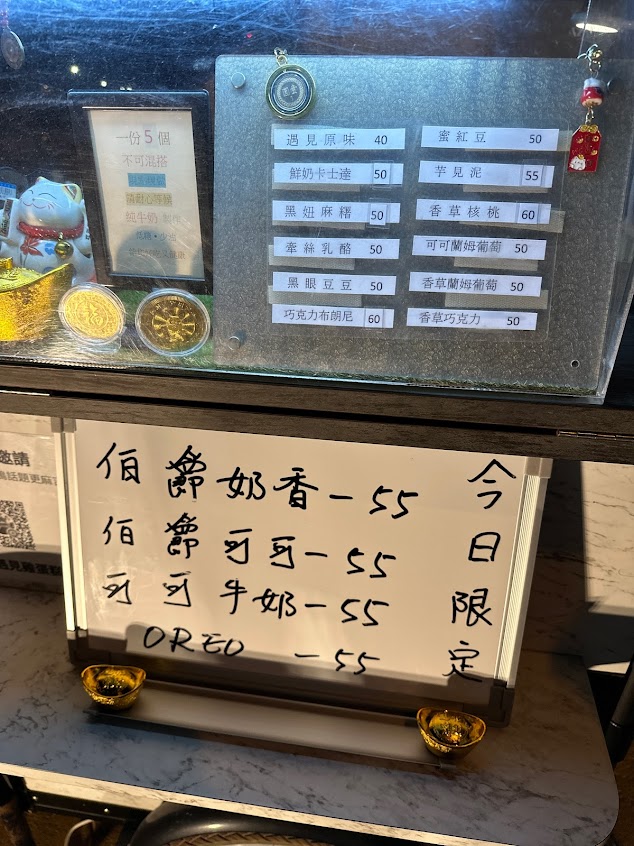 一份5個
不可混搭
請耐心等候
純牛奶 製作
遇見原味 40
鮮奶卡士達 50
黑妞麻糬 50
牽絲乳酪 50
黑眼豆豆 50
巧克力布朗尼 60
蜜紅豆 50
芋見泥 55
香草核桃 60
可可蘭姆葡萄 50
香草蘭姆葡萄 50
香草巧克力 50
今日限定
伯爵奶香-55
伯爵可可-55
可可牛奶-55
OREO -55
邀請
遇見雞蛋糕